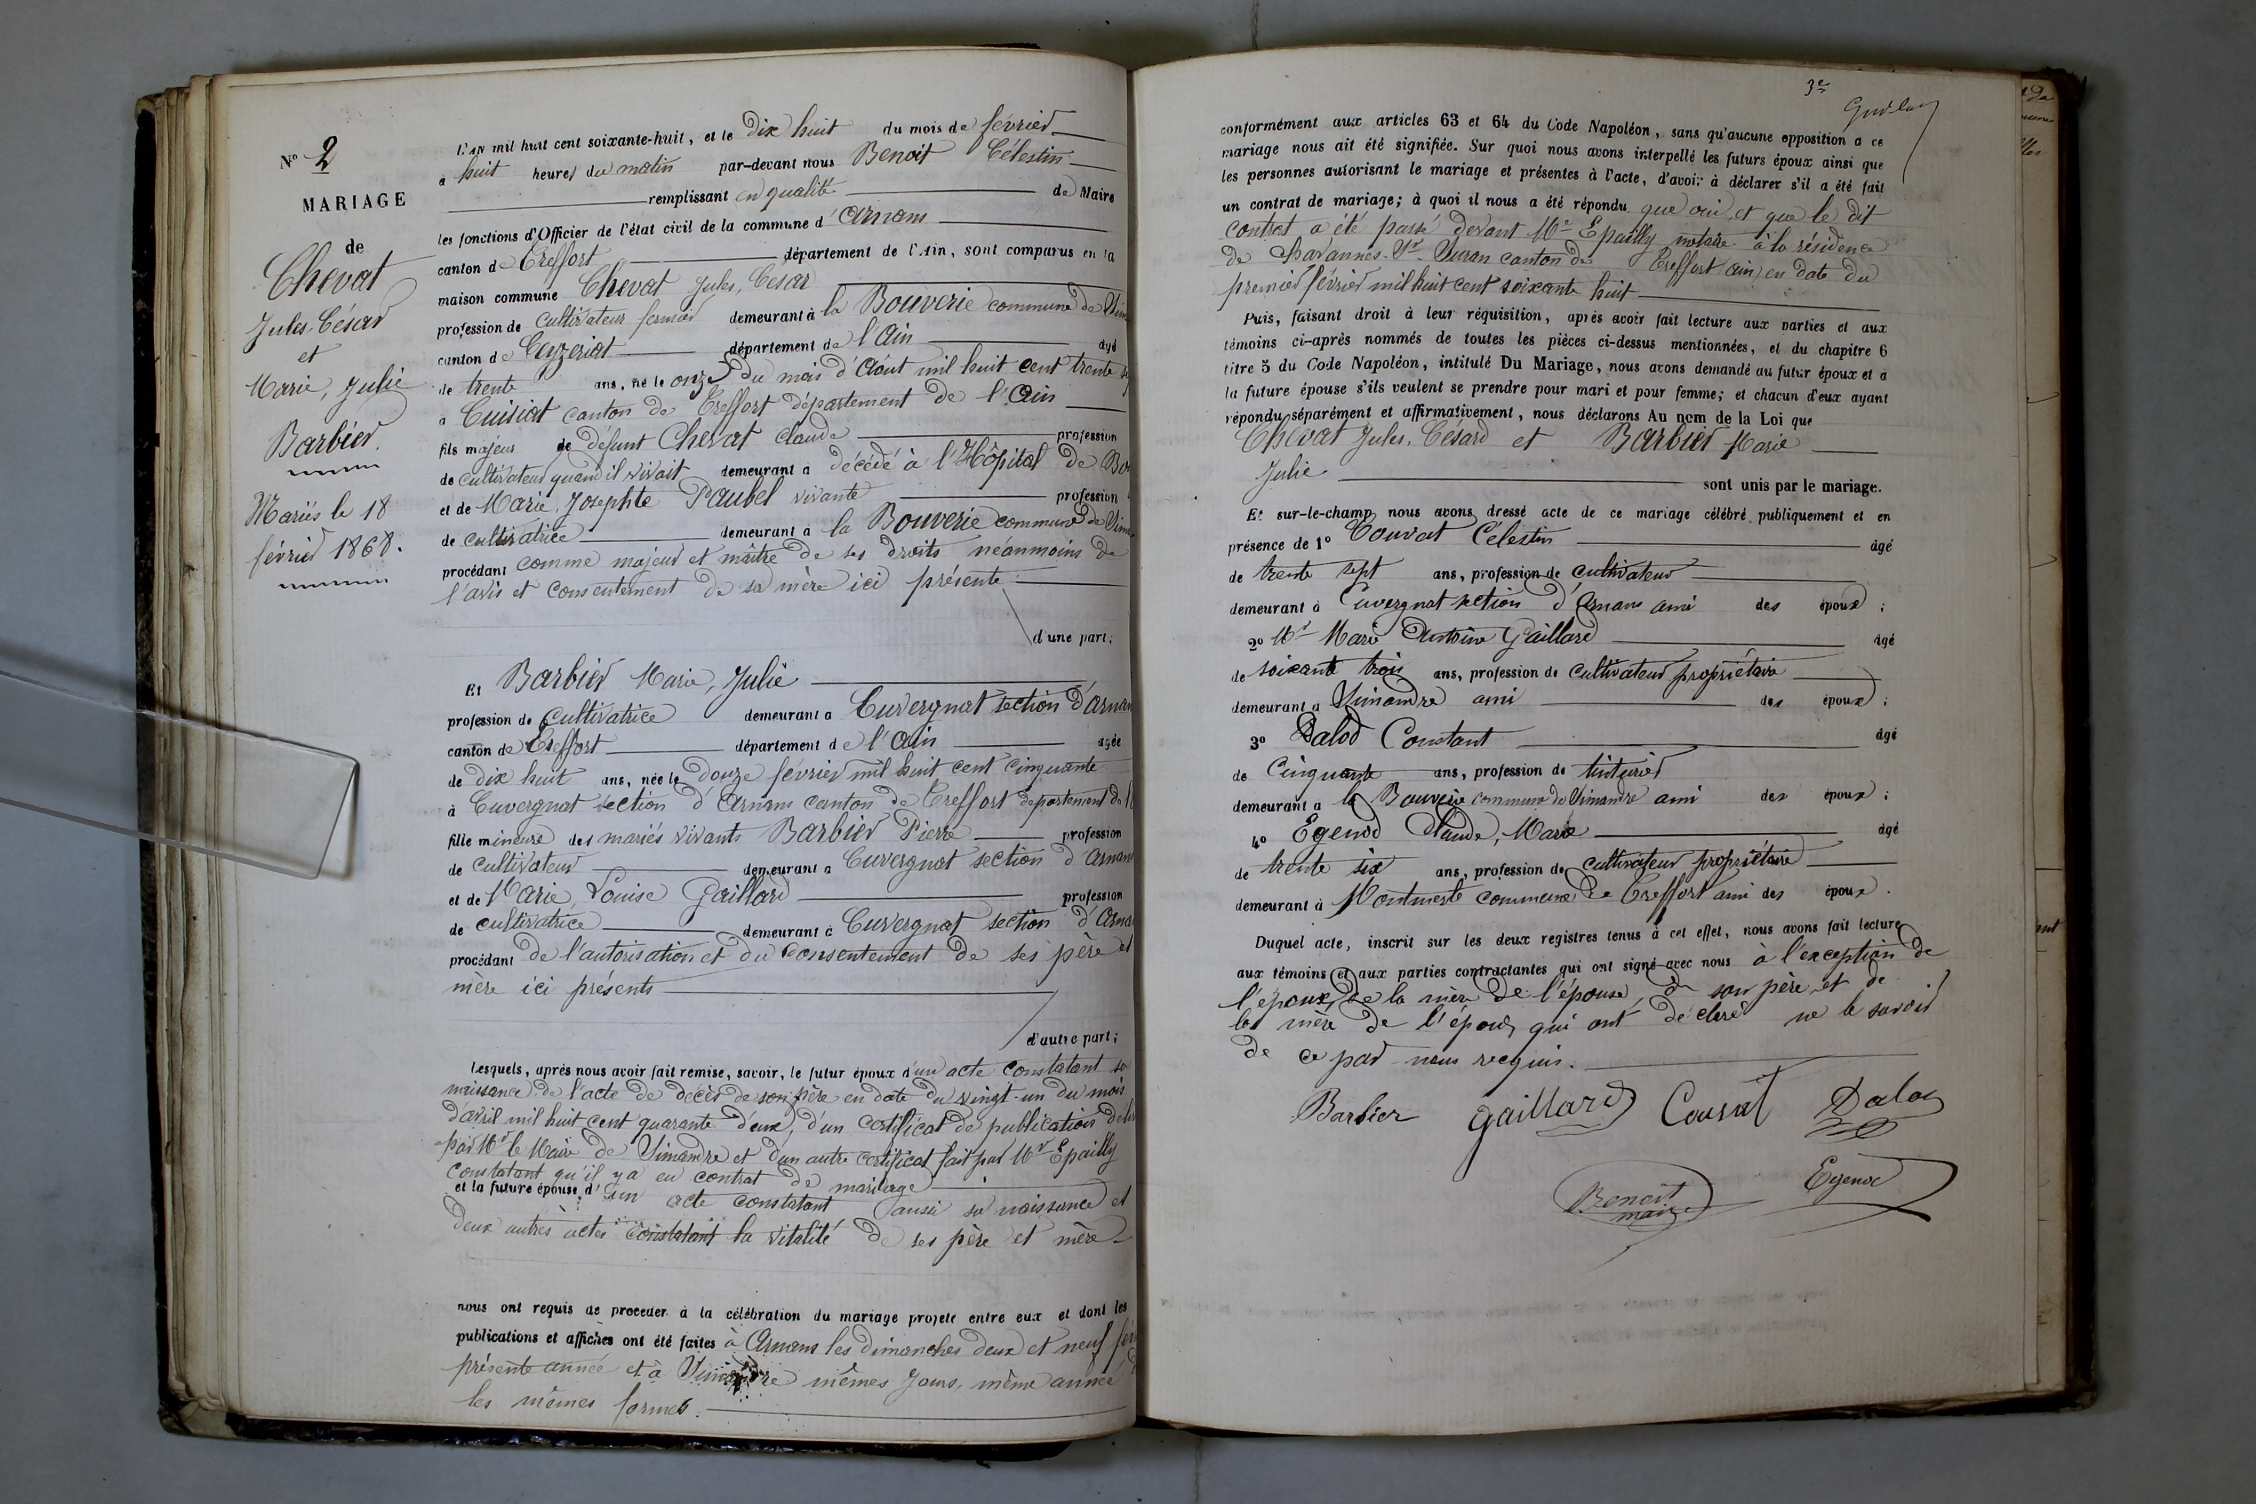 Nº 2
MARIAGE
de
Chevat
Jules, César
et
Marie, Julie
Barbier.
Mariés le 18
février 1868.
L'an mil huit cent soixante-huit, et le dix huit du mois de février
à huit heures du matin par-devant nous Benoit Célestin
remplissant en qualité de Maire
les fonctions d'Officier de l'état civil de la commune d'Arnans
canton de Treffort département de l'Ain, sont comparus en la
maison commune Chevat Jules, César
profession de cultivateur fermier demeurant à la Bouverie commune de
canton de Ceyzeriat département de l'Ain âgé
de trente ans, né le onze du mois d'Août mil huit cent trente
à Cuisiat canton de Treffort département de l'Ain
fils majeur de défunt Chevat Claude profession
de cultivateur quand il vivait demeurant à décédé à l'Hôpital de
et de Marie, Josephte Paubel vivante profession
de cultivatrice demeurant à la Bouverie commune de
procédant comme majeur et maître de ses droits néanmoins de
l'avis et consentement de sa mère ici présente
d'une part;
Et Barbier Marie, Julie
profession de cultivatrice demeurant à Cuvergnat section d'
canton de Treffort département de l'Ain agée
de dix huit ans, née le douze février mil huit cent cinquante
à Cuvergnat section d'Arnans canton de Treffort departement de
fille mineure des mariés vivants Barbier Pierre profession
de cultivateur demeurant à Cuvergnat section d'
et de Marie, Louise Gaillard profession
de cultivatrice demeurant à Cuvergnat section d'
procédant de l'autorisation et du consentement de ses père et
mère ici présents
d'autre part;
Lesquels, après nous avoir fait remise, savoir, le futur époux d'un acte constatant sa
naissance de l'acte de décès de son père en date du vingt-un du mois
d'avril mil huit cent quarante deux, d'un certificat de publication
par Mr le Maire de Simandre et d'un autre certificat fait par Mr Epailly
constatant qu'il y a eu contrat de mariage
et la future épouse d'un acte constatant aussi sa naissance et
deux autres actes constatant la vitalité de ses père et mère
nous ont requis de procéder à la célébration du mariage projeté entre eux et dont les
publications et affiches ont été faites à Arnans les dimanches deux et neuf
présente année et à Simandre mêmes jours, même année
les mêmes formes.
3e
conformément aux articles 63 et 64 du Code Napoléon, sans qu'aucune opposition a ce
mariage nous ait été signifiée. Sur quoi nous avons interpellé les futurs époux ainsi que
les personnes autorisant le mariage et présentes à l'acte, d'avoir à déclarer s'il a été fait
un contrat de mariage; à quoi il nous a été répondu que oui et que le dit
contrat a été passé devant Me Epailly notaire à la résidence
de Chavannes Sr Suran canton de Treffort (ain) en date du
premier février mil huit cent soixante huit
Puis, faisant droit à leur réquisition, après avoir fait lecture aux parties et aux
témoins ci-après nommés de toutes les pièces ci-dessus mentionnées, et du chapitre 6
titre 5 du Code Napoléon, intitulé Du Mariage, nous avons demandé au futur époux et a
la future épouse s'ils veulent se prendre pour mari et pour femme; et chacun d'eux ayant
répondu séparément et affirmativement, nous déclarons Au nom de la Loi que
Chevat Jules, César et Barbier Marie
Julie sont unis par le mariage.
Et sur-le-champ nous avons dressé acte de ce mariage célébré publiquement et en
présence de 1º Couvat Célestin âgé
de trente sept ans, profession de cultivateur
demeurant à Cuvergnat section d'Arnans ami des époux;
2º Mr Marie Antoine Gaillard âgé
de soixante trois ans, profession de cultivateur propriétaire
demeurant à Simandre ami des époux;
3º Dalod Constant âgé
de Cinquante ans, profession de teinturier
demeurant à la Bouverie commune de Simandre ami des époux;
4º Egenod Claude, Marie âgé
de trente six ans, profession de cultivateur propriétaire
demeurant à Montmerle commune de Treffort ami des époux.
Duquel acte, inscrit sur les deux registres tenus à cet effet, nous avons fait lecture
aux témoins et aux parties contractantes qui ont signé avec nous à l'exception de
l'époux, de la mère de l'épouse, de son père et de
la mère de l'époux qui ont déclaré ne le savoir
de ce par nous requis.
Barbier Gaillard Couvat Dalod
Benoit
maire
Egenod